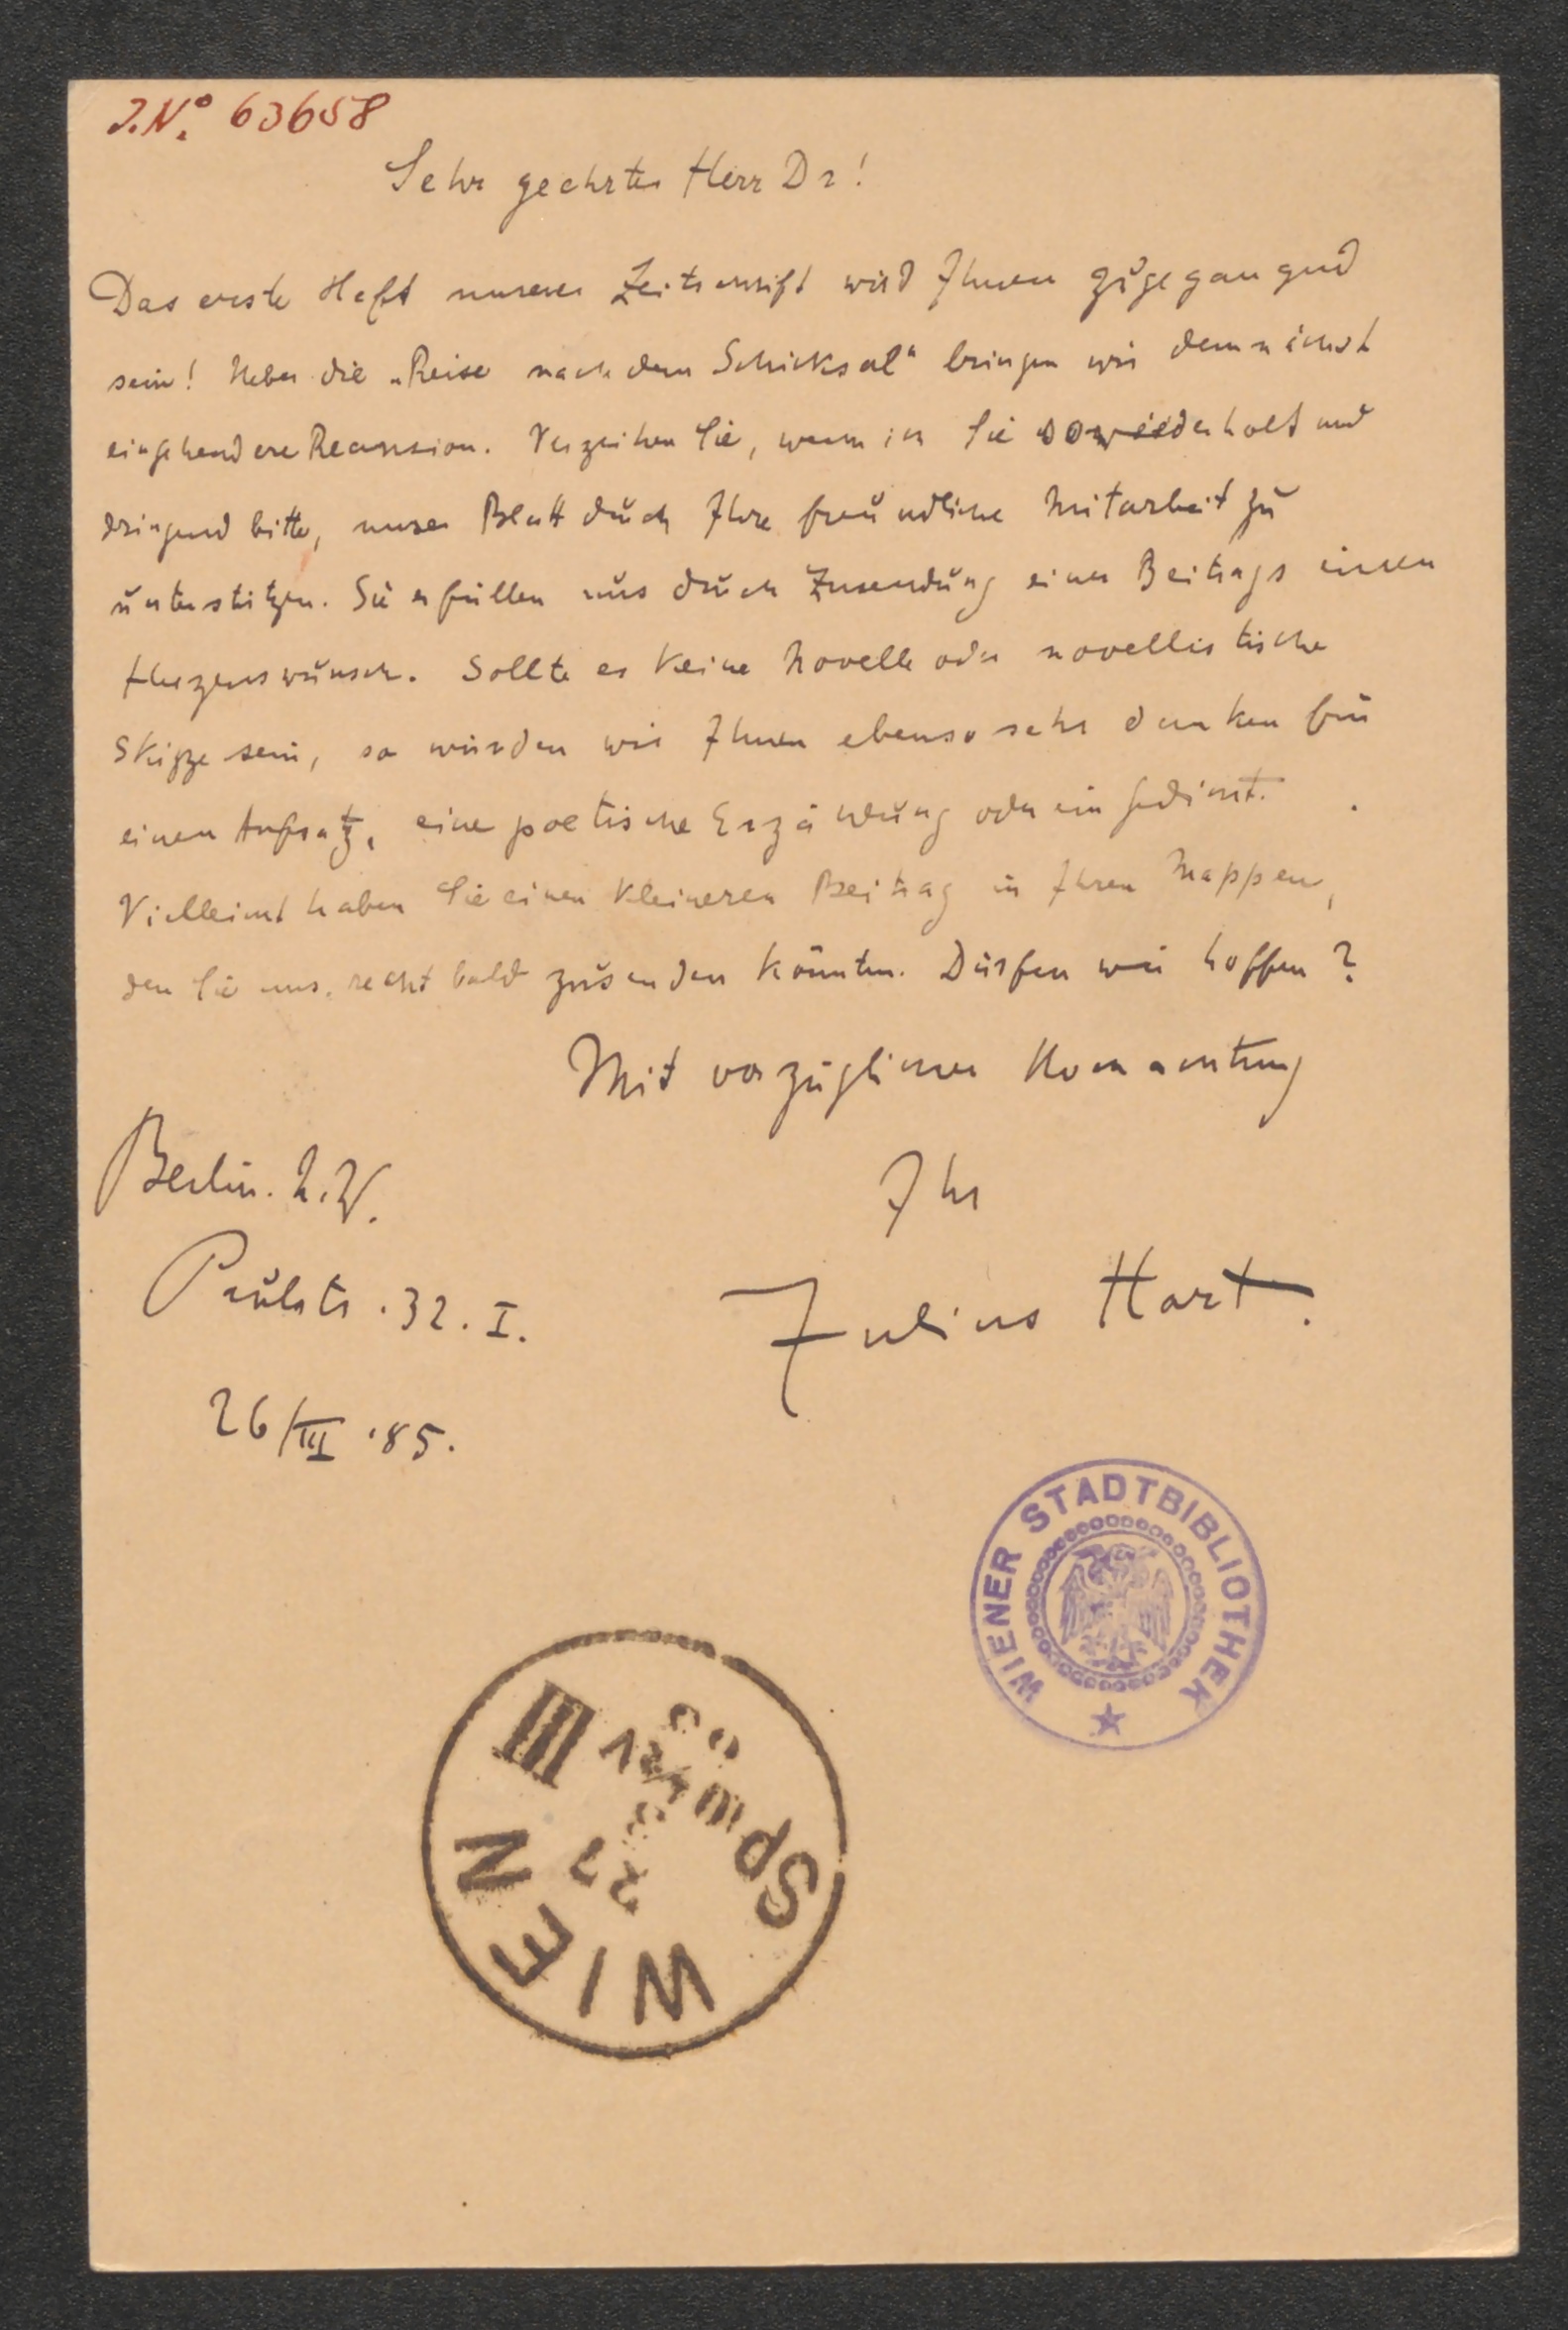 J.Nº. 63658
Sehr geehrter Herr Dr!
Das erste Heft unserer Zeitschrift wird Ihnen zugegangend
sein! Ueber die „Reise nach dem Schicksal“ bringen wir demnächst
eingehendere Recension. Verzeihen Sie, wenn ich Sie so wiederholt und
dringend bitte, unser Blatt durch Ihre freundliche Mitarbeit zu
unterstützen. Sie erfüllen uns durch Zusendung eines Beitrags einen
Herzenswunsch. Sollte es keine Novelle oder novellistische
Skizze sein, so würden wir Ihnen ebenso sehr danken für
einen Aufsatz, eine poetische Erzählung oder ein Gedicht.
Vielleicht haben Sie einen kleineren Beitrag in Ihren Mappen,
den Sie uns recht bald zusenden könnten. Dürfen wir hoffen?
Mit vorzüglicher Hochachtung
Ihr
Julius Hart.
Berlin. N.W.
Paulstr. 32. I.
26/III '85.
WIENER STADTBIBLIOTHEK
WIEN
III
27